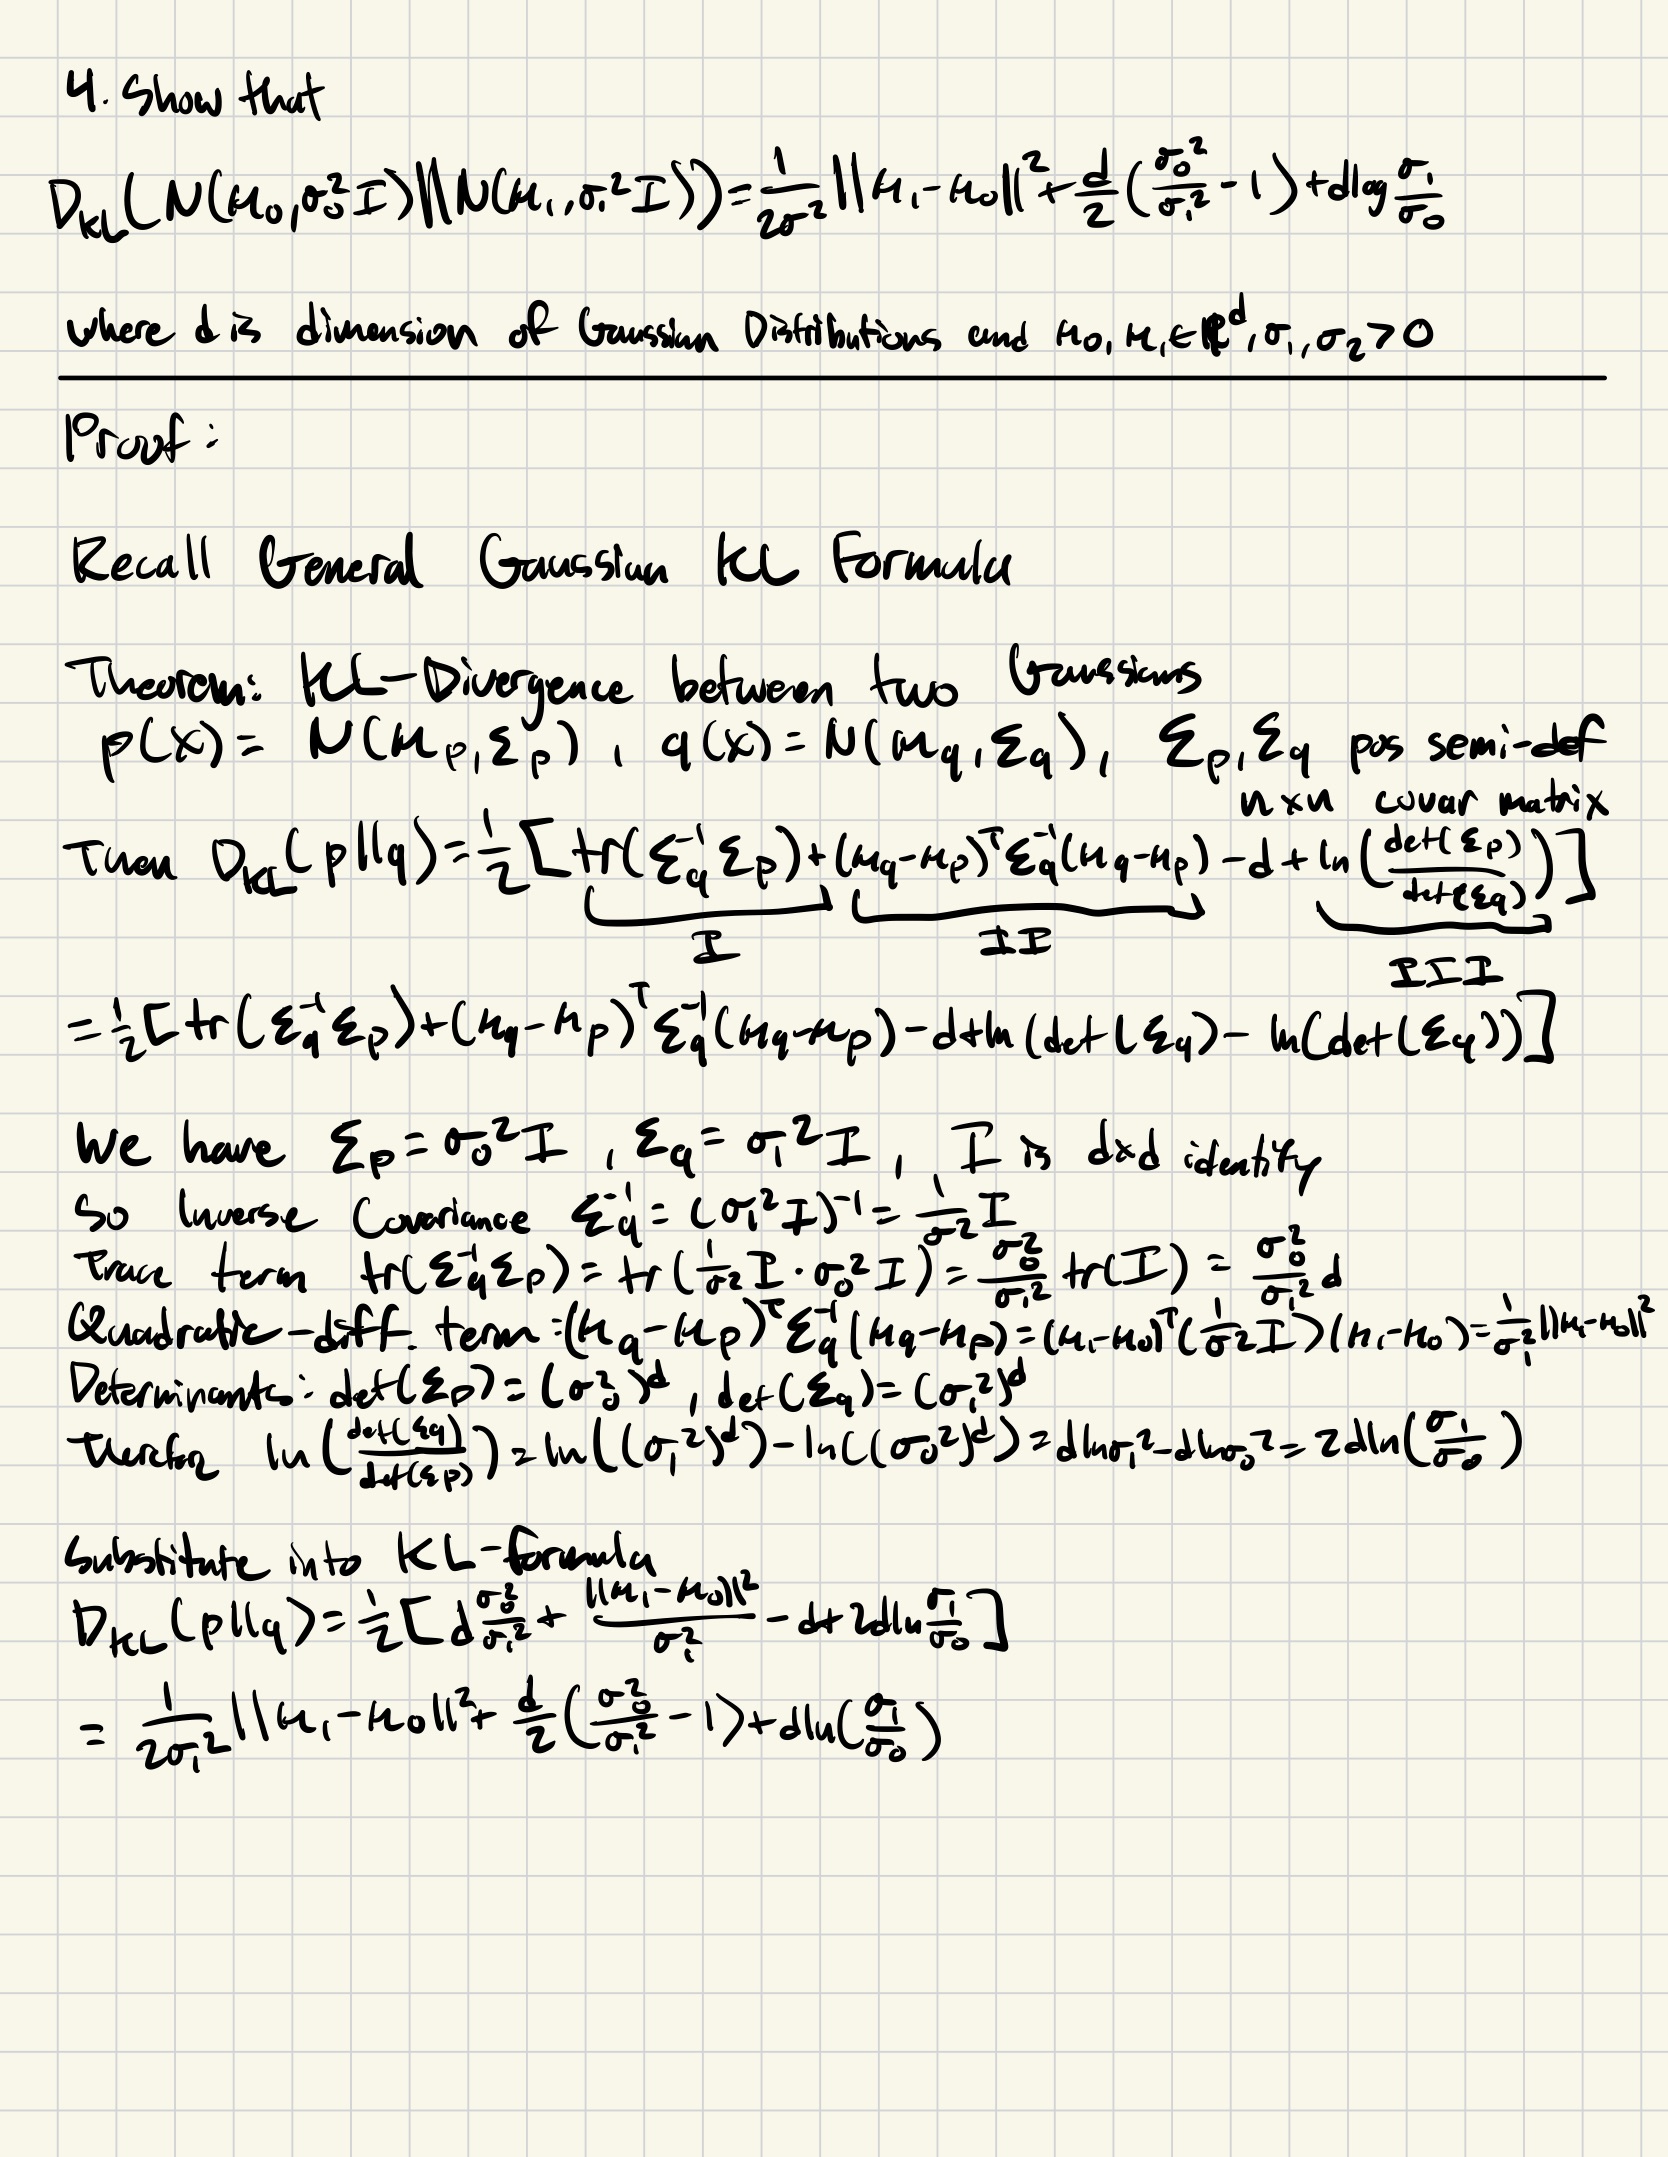 4. Show that
D_KL(N(μ₀,σ₀²I)||N(μ₁,σ₁²I))=1/(2σ²)||μ₁-μ₀||²+d/2(σ₀²/σ₁²-1)+dlog σ₁/σ₀
where d is dimension of Gaussian Distributions and μ₀,μ₁∈ℝᵈ,σ₁,σ₂>0
Proof:
Recall General Gaussian KL Formula
Theorem: KL-Divergence between two Gaussians
p(x)= N(μ_p,Σ_p), q(x)=N(μ_q,Σ_q), Σ_p,Σ_q pos semi-def
n×n covar matrix
Then D_KL(p||q)=1/2[tr(Σ_q⁻¹Σ_p)+(μ_q-μ_p)ᵀΣ_q⁻¹(μ_q-μ_p)-d+ln(det(Σ_p)/det(Σ_q))]
I II III
=1/2[tr(Σ_q⁻¹Σ_p)+(μ_q-μ_p)ᵀΣ_q⁻¹(μ_q-μ_p)-d+ln(det(Σ_q)-ln(det(Σ_q))]
We have Σ_p=σ₀²I, Σ_q=σ₁²I, I is d×d identity
So Inverse Covariance Σ_q⁻¹=(σ₁²I)⁻¹=1/σ² I
Trace term tr(Σ_q⁻¹Σ_p)=tr(1/σ² I·σ₀²I)=σ₀²/σ₁² tr(I)=σ₀²/σ₁² d
Quadratic-diff. term:(μ_q-μ_p)ᵀΣ_q⁻¹(μ_q-μ_p)=(μ₁-μ₀)ᵀ(1/σ² I)(μ₁-μ₀)=1/σ₁²||μ₁-μ₀||²
Determinants: det(Σ_p)=(σ₀²)ᵈ, det(Σ_q)=(σ₁²)ᵈ
Therefor ln(det(Σ_q)/det(Σ_p))=ln((σ₁²)ᵈ)-ln((σ₀²)ᵈ)=dlnσ₁²-dlnσ₀²=2dln(σ₁/σ₀)
Substitute into KL-formula
D_KL(p||q)=1/2[d σ₀²/σ₁²+||μ₁-μ₀||²/σ₁²-d+2dln σ₁/σ₀]
=1/(2σ₁²)||μ₁-μ₀||²+d/2(σ₀²/σ₁²-1)+dln(σ₁/σ₀)